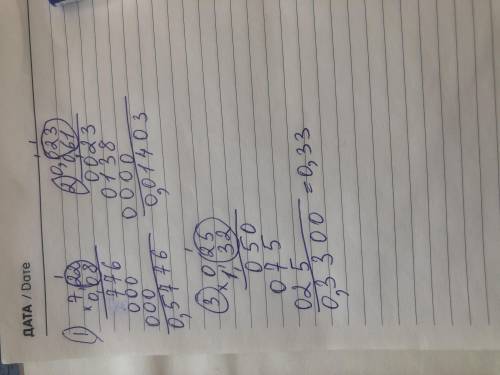 ДАТА / Date
1) 7,22
× 0,08
776
000
000
0,5776
2) 0,023
0,61
0023
0138
0000
0,01403
3) 0,25
× 1,32
050
075
025
0,3300 = 0,33